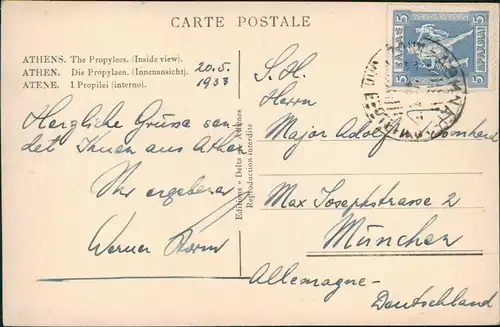 CARTE POSTALE
ATHENS. The Propylees. (Inside view).
ATHEN. Die Propylaen. (Innenansicht).
ATENE. I Propilei (interno).
20.5.
1933
Herzliche Grüsse sen
det Ihnen aus Athen
Ihr ergebener
Werner
Editions - Delta - Athenes
Reproduction interdite
5 ΕΛΛΑΣ 5
5 ΔΡΑΧΜΑΙ 5
S. H.
Herrn
Major Adolf
Max Josephstrasse 2
München
Allemagne-
Deutschland